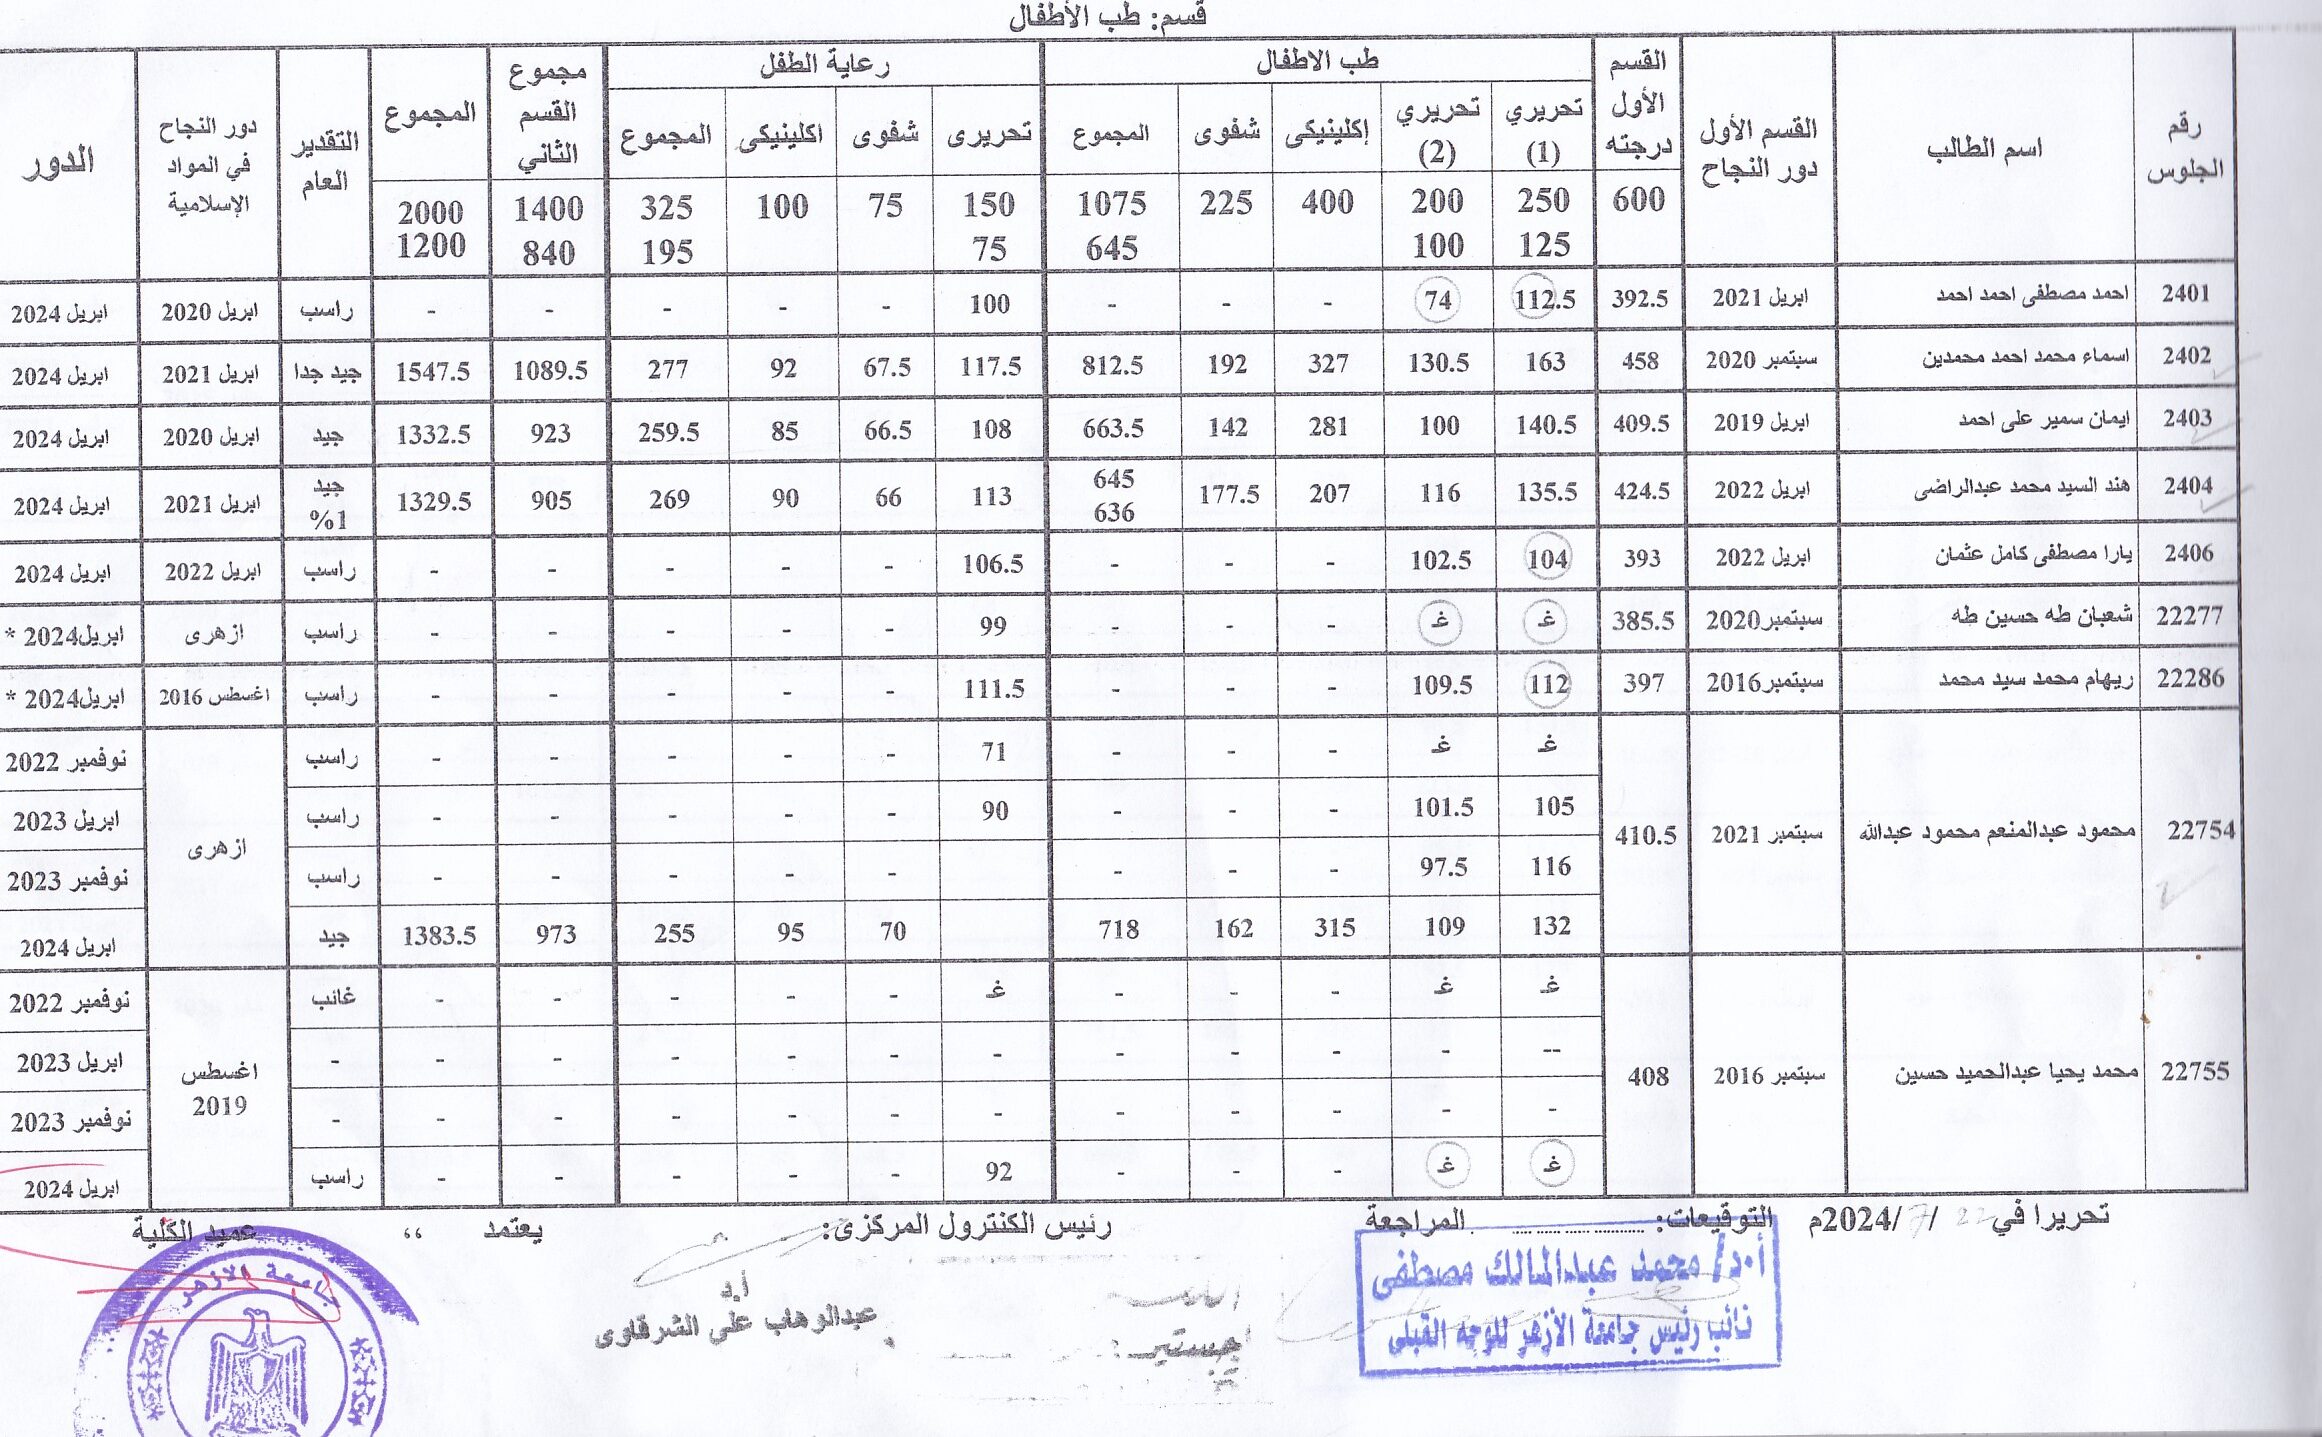 قسم: طب الأطفال
رقم الجلوس | اسم الطالب | القسم الأول دور النجاح | القسم الأول درجته | طب الاطفال | رعاية الطفل | مجموع القسم الثاني | المجموع | التقدير العام | دور النجاح في المواد الإسلامية | الدور
تحريري (1) | تحريري (2) | إكلينيكى | شفوى | المجموع | تحريرى | شفوى | اكلينيكى | المجموع
600 | 250 | 200 | 400 | 225 | 1075 | 150 | 75 | 100 | 325 | 1400 | 2000
125 | 100 | 645 | 75 | 195 | 840 | 1200
2401 | احمد مصطفى احمد احمد | ابريل 2021 | 392.5 | 112.5 | 74 | - | - | - | 100 | - | - | - | - | - | راسب | ابريل 2020 | ابريل 2024
2402 | اسماء محمد احمد محمدين | سبتمبر 2020 | 458 | 163 | 130.5 | 327 | 192 | 812.5 | 117.5 | 67.5 | 92 | 277 | 1089.5 | 1547.5 | جيد جدا | ابريل 2021 | ابريل 2024
2403 | ايمان سمير على احمد | ابريل 2019 | 409.5 | 140.5 | 100 | 281 | 142 | 663.5 | 108 | 66.5 | 85 | 259.5 | 923 | 1332.5 | جيد | ابريل 2020 | ابريل 2024
2404 | هند السيد محمد عبدالراضى | ابريل 2022 | 424.5 | 135.5 | 116 | 207 | 177.5 | 645 636 | 113 | 66 | 90 | 269 | 905 | 1329.5 | جيد 1% | ابريل 2021 | ابريل 2024
2406 | يارا مصطفى كامل عثمان | ابريل 2022 | 393 | 104 | 102.5 | - | - | - | 106.5 | - | - | - | - | - | راسب | ابريل 2022 | ابريل 2024
22277 | شعبان طه حسين طه | سبتمبر2020 | 385.5 | غـ | غـ | - | - | - | 99 | - | - | - | - | - | راسب | ازهرى | ابريل2024 *
22286 | ريهام محمد سيد محمد | سبتمبر2016 | 397 | 112 | 109.5 | - | - | - | 111.5 | - | - | - | - | - | راسب | اغسطس 2016 | ابريل2024 *
22754 | محمود عبدالمنعم محمود عبدالله | سبتمبر 2021 | 410.5 | غـ | غـ | - | - | - | 71 | - | - | - | - | - | راسب | ازهرى | نوفمبر 2022
105 | 101.5 | - | - | - | 90 | - | - | - | - | - | راسب | ابريل 2023
116 | 97.5 | - | - | - | - | - | - | - | - | - | راسب | نوفمبر 2023
132 | 109 | 315 | 162 | 718 | 70 | 95 | 255 | 973 | 1383.5 | جيد | ابريل 2024
22755 | محمد يحيا عبدالحميد حسين | سبتمبر 2016 | 408 | غـ | غـ | - | - | - | غـ | - | - | - | - | - | غائب | اغسطس 2019 | نوفمبر 2022
-- | - | - | - | - | - | - | - | - | - | - | - | ابريل 2023
- | - | - | - | - | - | - | - | - | - | - | - | نوفمبر 2023
غـ | غـ | - | - | - | 92 | - | - | - | - | - | راسب | ابريل 2024
تحريرا في 22 / 7 /2024م التوقيعات: المراجعة رئيس الكنترول المركزى: يعتمد ،، عميد الكلية
أ.د/ محمد عبدالمالك مصطفى
نائب رئيس جامعة الأزهر للوجه القبلى
أ.د
عبدالوهاب على الشرقاوى
جامعة الازهر